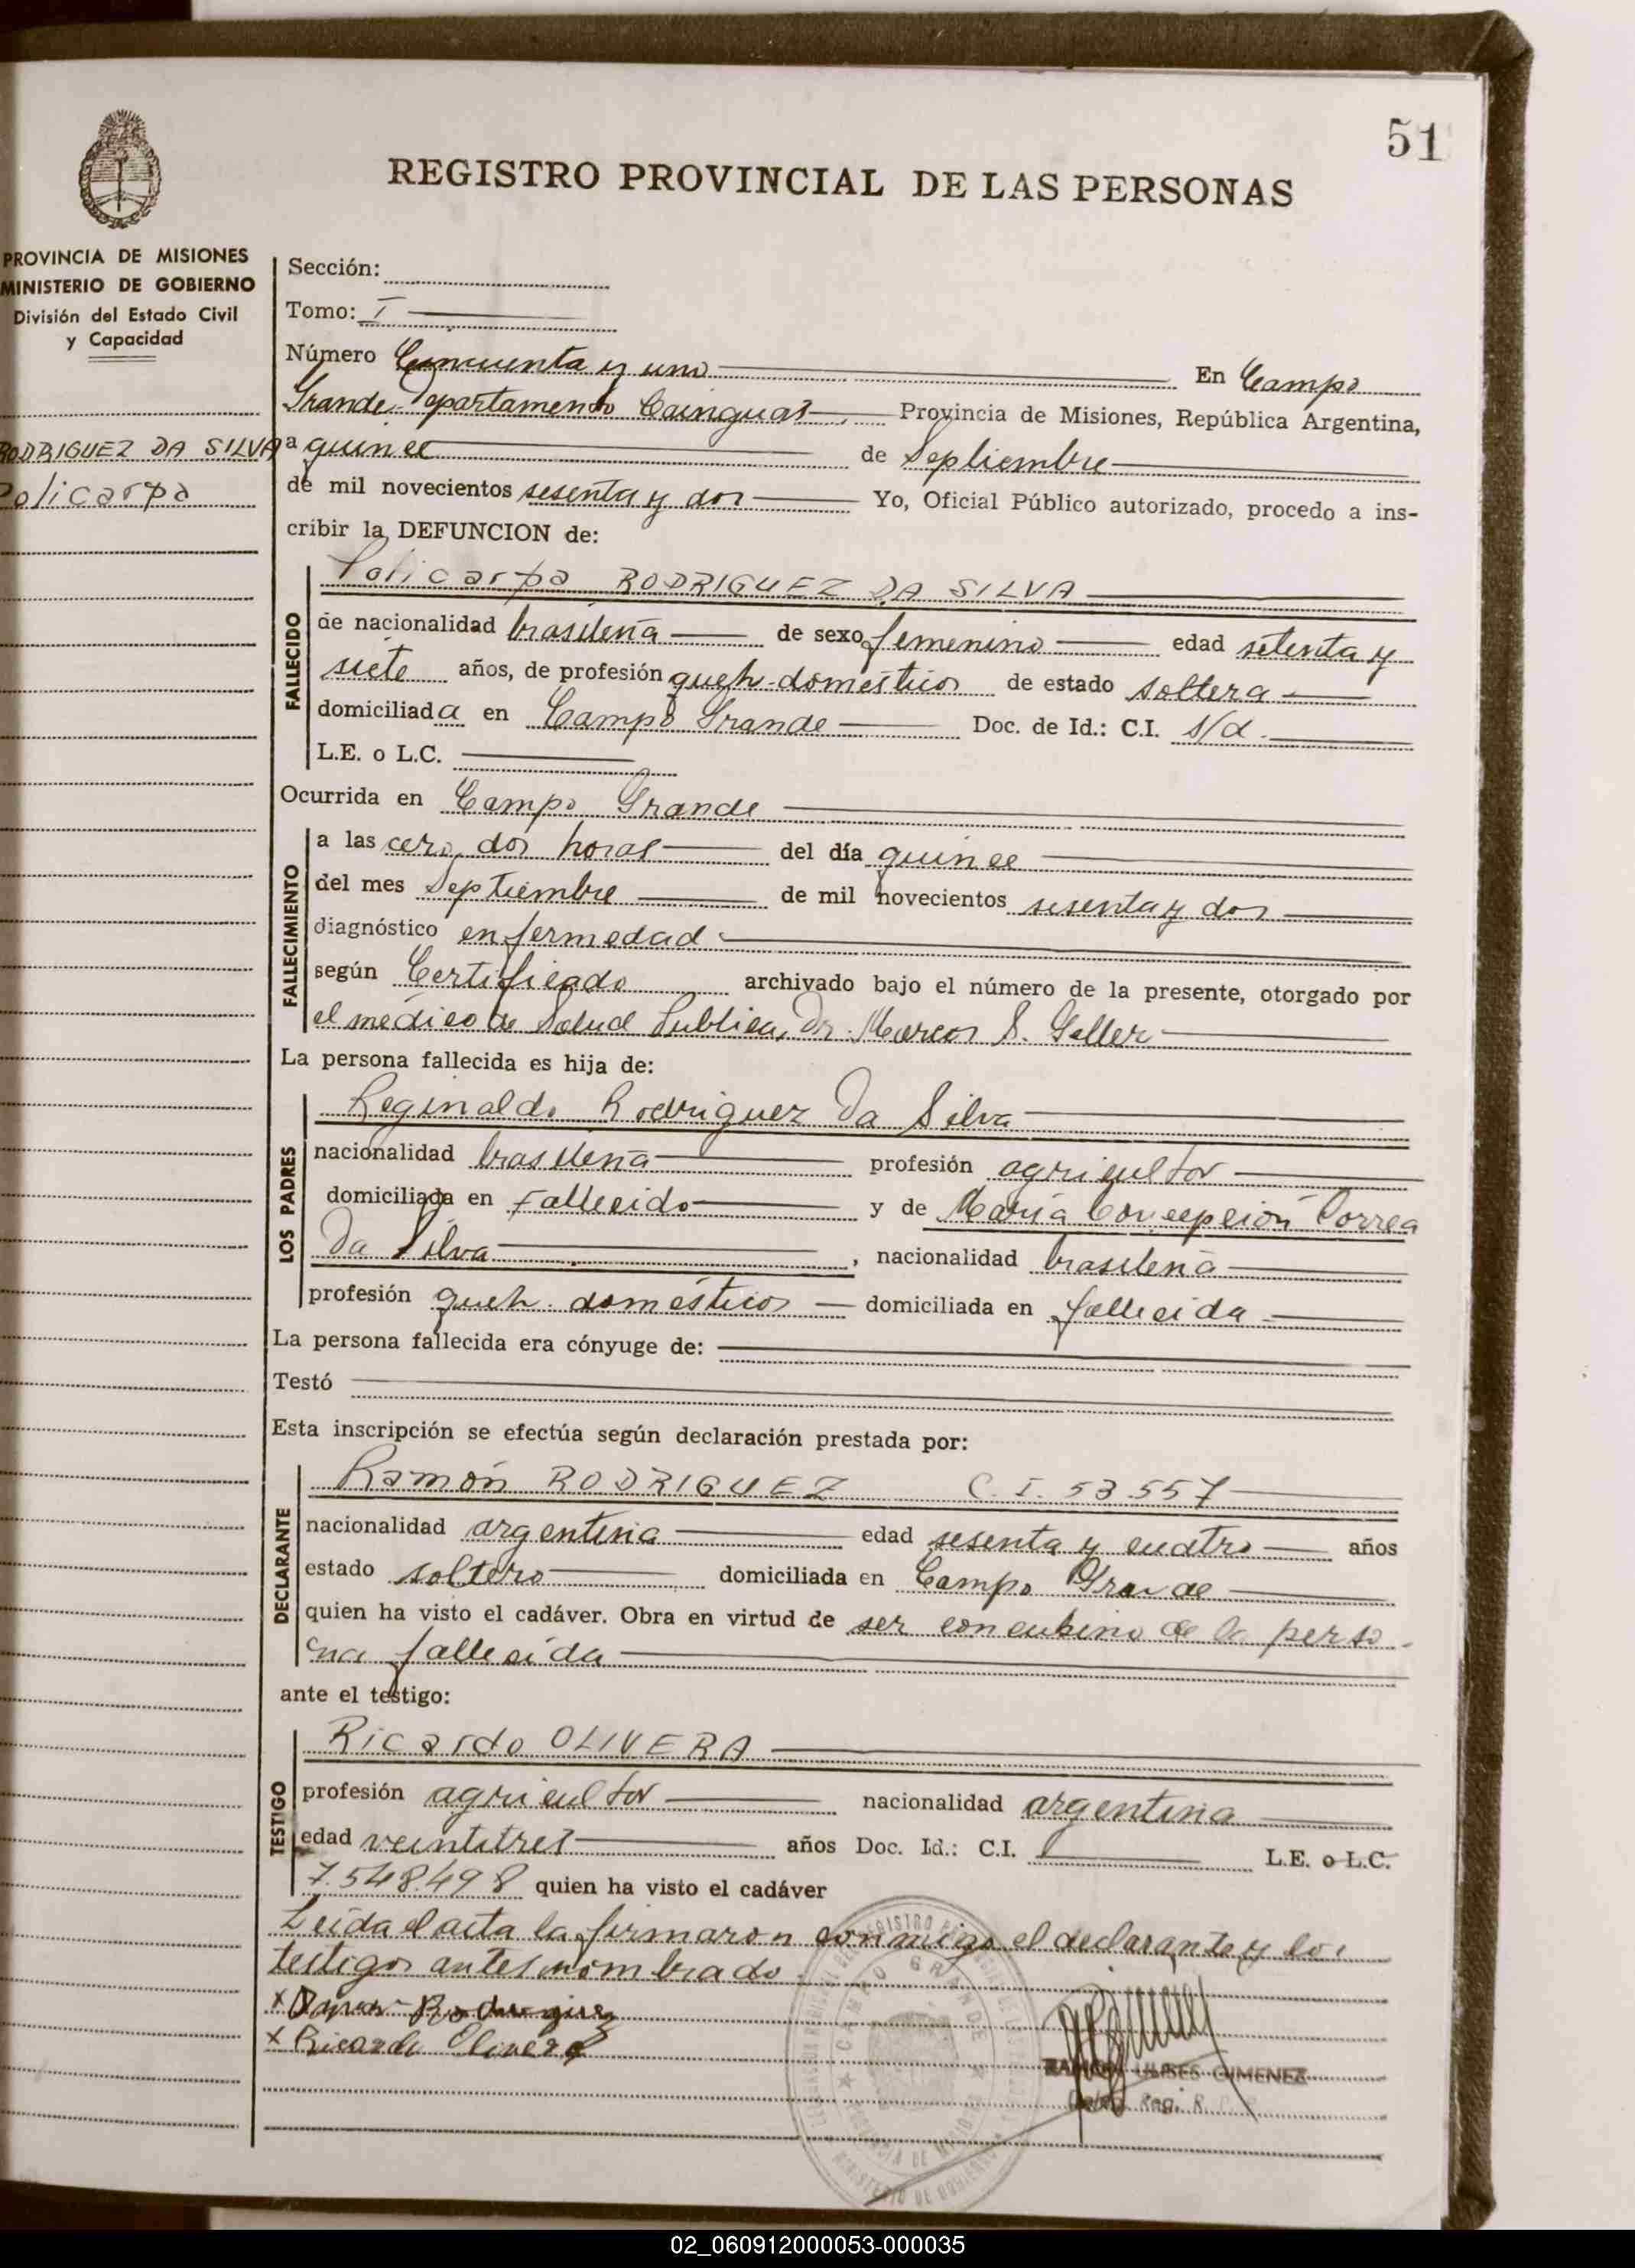 51
REGISTRO PROVINCIAL DE LAS PERSONAS
PROVINCIA DE MISIONES
MINISTERIO DE GOBIERNO
División del Estado Civil
y Capacidad
RODRIGUEZ DA SILVA
Policarpa
Sección:
Tomo: I
Número Cincuenta y uno En Campo
Grande, Departamento Cainguas, Provincia de Misiones, República Argentina,
a quince de Septiembre
de mil novecientos sesenta y dos Yo, Oficial Público autorizado, procedo a ins-
cribir la DEFUNCION de:
FALLECIDO
Policarpa RODRIGUEZ DA SILVA
de nacionalidad brasileña de sexo femenino edad setenta y
siete años, de profesión queh. domésticos de estado soltera
domiciliada en Campo Grande Doc. de Id.: C.I. s/d.
L.E. o L.C.
Ocurrida en Campo Grande
FALLECIMIENTO
a las cero dos horas del día quince
del mes Septiembre de mil novecientos sesenta y dos
diagnóstico enfermedad
según Certificado archivado bajo el número de la presente, otorgado por
el médico de Salud Publica, Dr. Marcos S. Geller
La persona fallecida es hija de:
LOS PADRES
Reginaldo Rodriguez Da Silva
nacionalidad brasileña profesión agricultor
domiciliada en Fallecido y de María Concepción Correa
Da Silva, nacionalidad brasileña
profesión queh. domésticos domiciliada en fallecida
La persona fallecida era cónyuge de:
Testó
Esta inscripción se efectúa según declaración prestada por:
DECLARANTE
Ramón RODRIGUEZ C. I. 53.557
nacionalidad argentina edad sesenta y cuatro años
estado soltero domiciliada en Campo Grande
quien ha visto el cadáver. Obra en virtud de ser concubino de la perso-
na fallecida
ante el testigo:
TESTIGO
Ricardo OLIVERA
profesión agricultor nacionalidad argentina
edad veintitres años Doc. Id.: C.I. L.E. o L.C.
7.548.498 quien ha visto el cadáver
Leida el acta la firmaron conmigo el declarante y los
testigos antes nombrado.
x Ramon Rodriguez
x Ricardo Olivera
CAMPO GRANDE
RAMON ULISES GIMENEZ
02_060912000053-000035